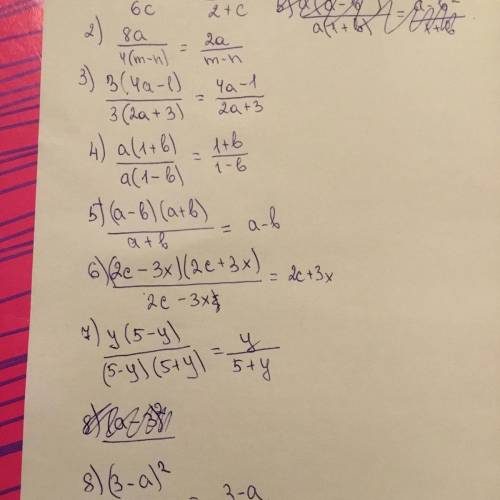 6c 2+c
2) 8a / 4(m-n) = 2a / m-n
3) 3(4a-1) / 3(2a+3) = 4a-1 / 2a+3
4) a(1+b) / a(1-b) = 1+b / 1-b
5) (a-b)(a+b) / a+b = a-b
6) (2c-3x)(2c+3x) / 2c-3x = 2c+3x
7) y(5-y) / (5-y)(5+y) = y / 5+y
8) (3-a)² = 3-a